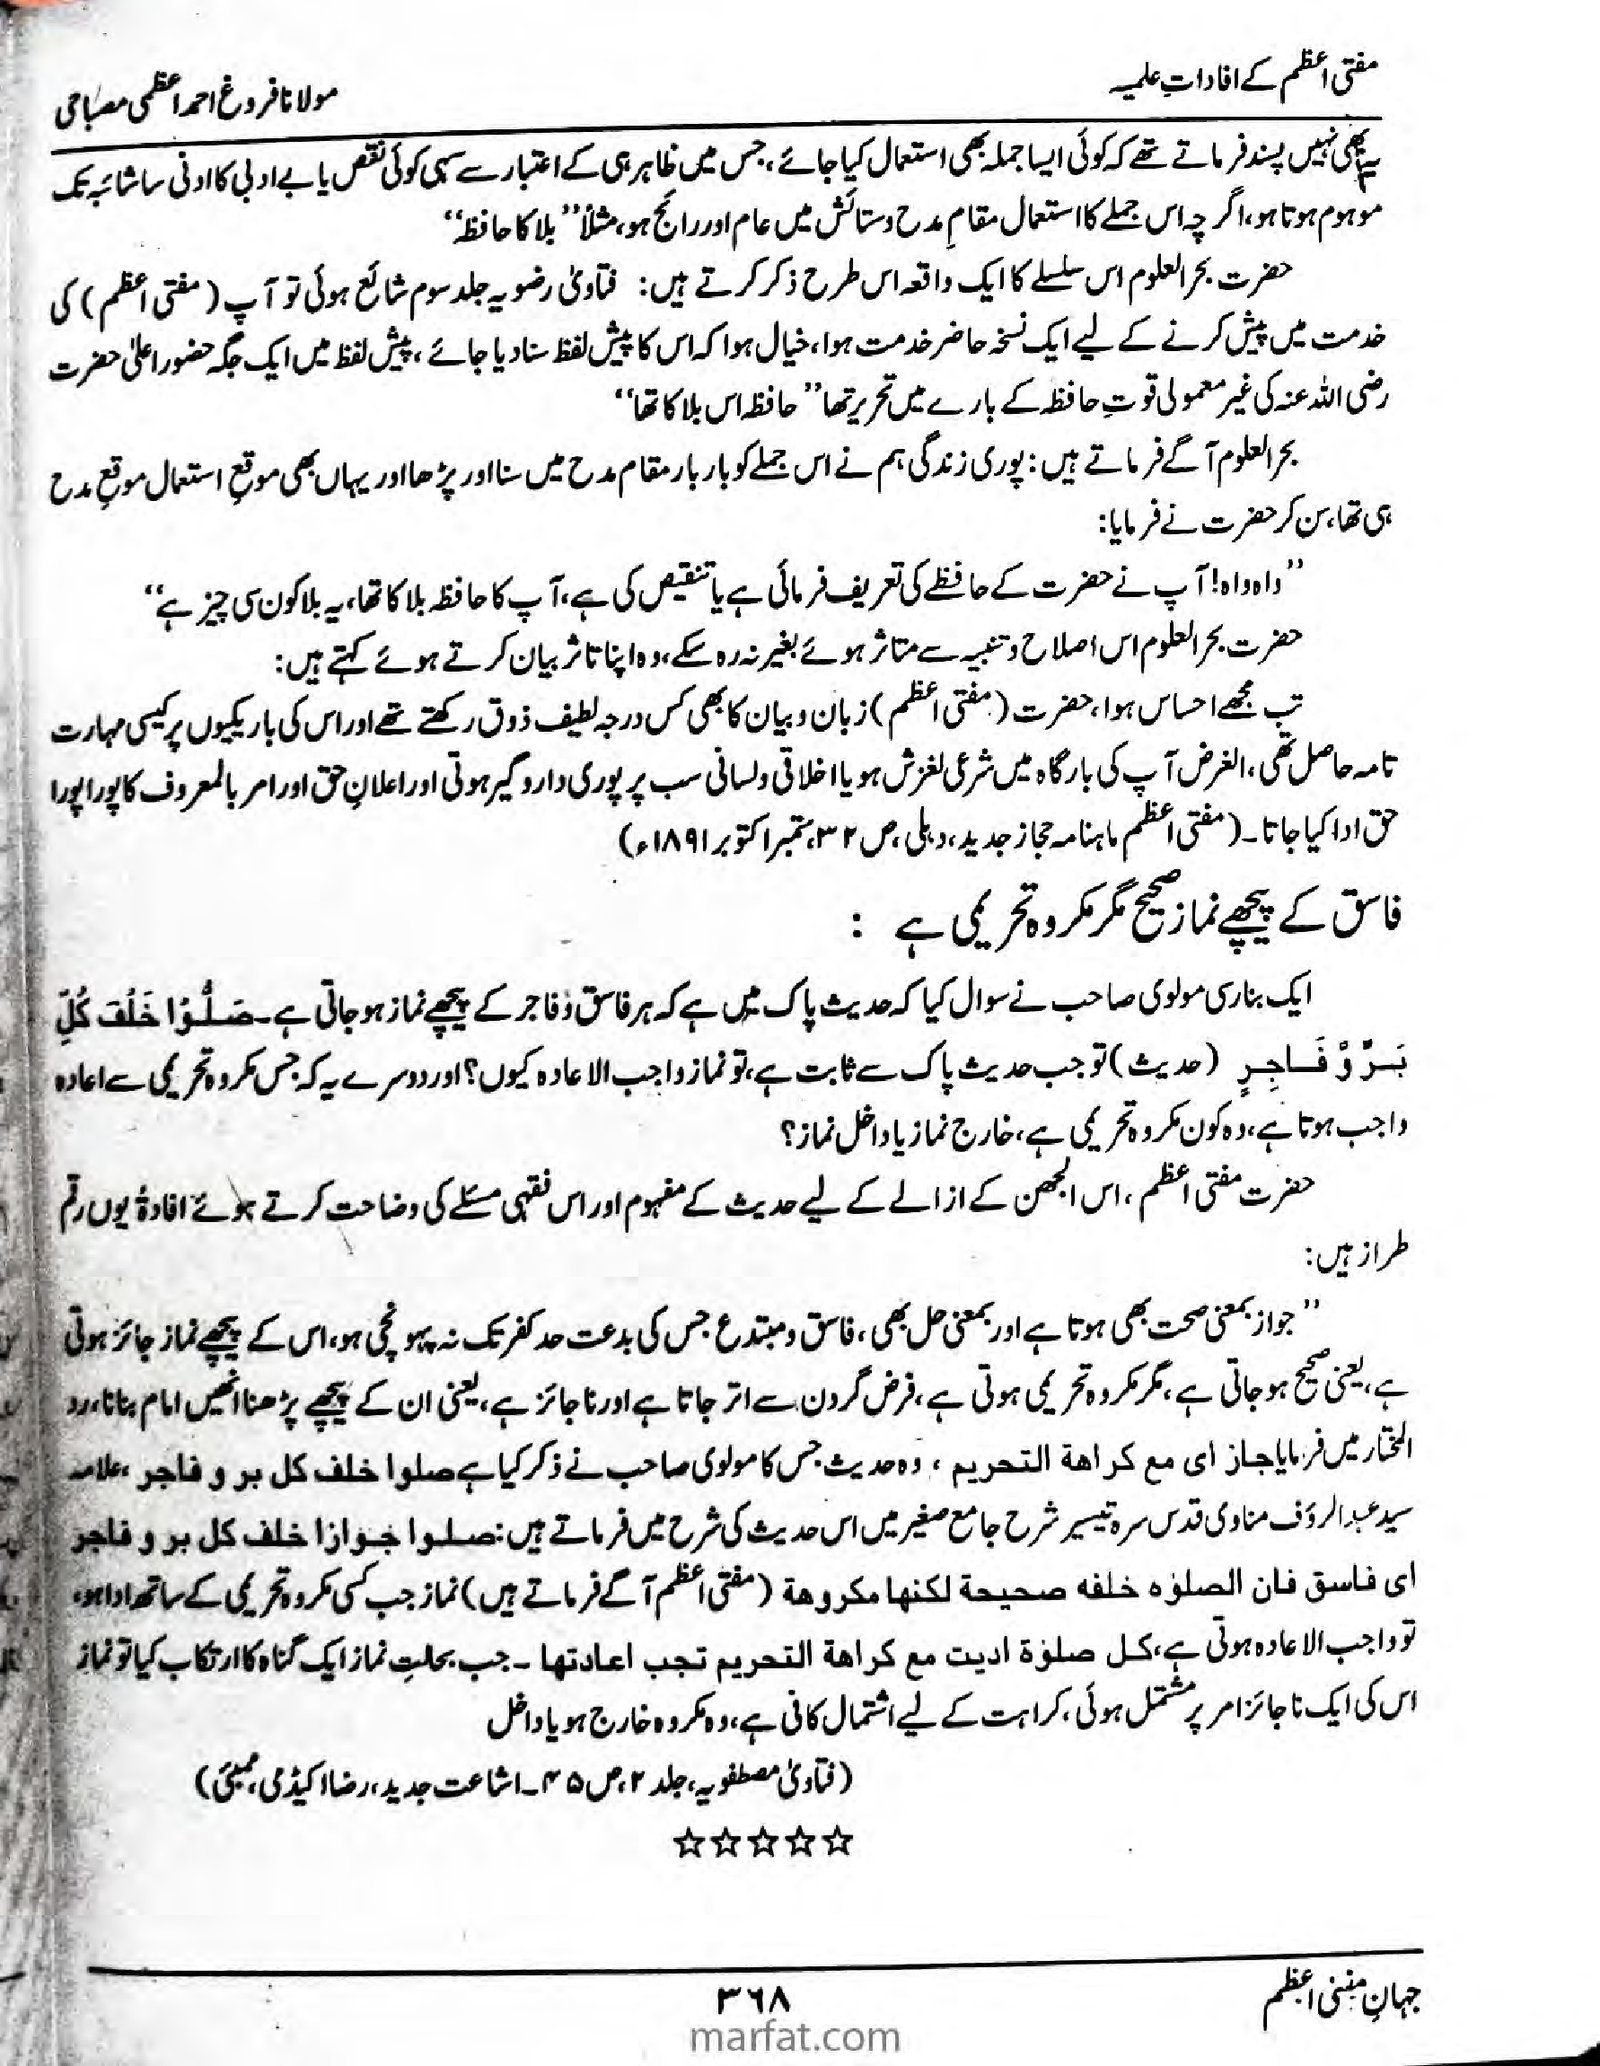 مفتی اعظم کے افاداتِ علمیہ
مولانا فروغ احمد اعظمی مصباحی
یہ بھی نہیں پسند فرماتے تھے کہ کوئی ایسا جملہ بھی استعمال کیا جائے، جس میں ظاہر ہی کے اعتبار سے سہی کوئی نقص یا بے ادبی کا ادنی سا شائبہ تک
موہوم ہوتا ہو، اگر چہ اس جملے کا استعمال مقامِ مدح و ستائش میں عام اور رائج ہو، مثلاً ”بلا کا حافظہ“
حضرت بحر العلوم اس سلسلے کا ایک واقعہ اس طرح ذکر کرتے ہیں: فتاویٰ رضویہ جلد سوم شائع ہوئی تو آپ (مفتی اعظم) کی
خدمت میں پیش کرنے کے لیے ایک نسخہ حاضر خدمت ہوا، خیال ہوا کہ اس کا پیش لفظ سنا دیا جائے، پیش لفظ میں ایک جگہ حضور اعلیٰ حضرت
رضی اللہ عنہ کی غیر معمولی قوتِ حافظہ کے بارے میں تحریر تھا ”حافظہ اس بلا کا تھا“
بحر العلوم آگے فرماتے ہیں: پوری زندگی ہم نے اس جملے کو بار بار مقام مدح میں سنا اور پڑھا اور یہاں بھی موقعِ استعمال موقعِ مدح
ہی تھا، سن کر حضرت نے فرمایا:
”واہ واہ! آپ نے حضرت کے حافظے کی تعریف فرمائی ہے یا تنقیص کی ہے، آپ کا حافظہ بلا کا تھا، یہ بلا کون سی چیز ہے“
حضرت بحر العلوم اس اصلاح و تنبیہ سے متاثر ہوئے بغیر نہ رہ سکے، وہ اپنا تاثر بیان کرتے ہوئے کہتے ہیں:
تب مجھے احساس ہوا، حضرت (مفتی اعظم) زبان و بیان کا بھی کس درجہ لطیف ذوق رکھتے تھے اور اس کی باریکیوں پر کیسی مہارت
تامہ حاصل تھی، الغرض آپ کی بارگاہ میں شرعی لغزش ہو یا اخلاقی و لسانی سب پر پوری دارو گیر ہوتی اور اعلانِ حق اور امر بالمعروف کا پورا پورا
حق ادا کیا جاتا۔ (مفتی اعظم ماہنامہ حجاز جدید، دہلی، ص ۳۲، ستمبر اکتوبر ۱۸۹۱ء)
فاسق کے پیچھے نماز صحیح مگر مکروہ تحریمی ہے :
ایک بنارسی مولوی صاحب نے سوال کیا کہ حدیث پاک میں ہے کہ ہر فاسق و فاجر کے پیچھے نماز ہو جاتی ہے۔ صَلُّوْا خَلْفَ كُلِّ
بَرٍّ وَّ فَاجِرٍ (حدیث) تو جب حدیث پاک سے ثابت ہے، تو نماز واجب الاعادہ کیوں؟ اور دوسرے یہ کہ جس مکروہ تحریمی سے اعادہ
واجب ہوتا ہے، وہ کون مکروہ تحریمی ہے، خارج نماز یا داخل نماز؟
حضرت مفتی اعظم، اس الجھن کے ازالے کے لیے حدیث کے مفہوم اور اس فقہی مسئلے کی وضاحت کرتے ہوئے افادۃً یوں رقم
طراز ہیں:
”جواز بمعنی صحت بھی ہوتا ہے اور بمعنی حل بھی، فاسق و مبتدع جس کی بدعت حد کفر تک نہ پہونچی ہو، اس کے پیچھے نماز جائز ہوتی
ہے، یعنی صحیح ہو جاتی ہے، مگر مکروہ تحریمی ہوتی ہے، فرض گردن سے اتر جاتا ہے اور ناجائز ہے، یعنی ان کے پیچھے پڑھنا انھیں امام بنانا، رد
المختار میں فرمایا جاز ای مع کراھة التحریم ، وہ حدیث جس کا مولوی صاحب نے ذکر کیا ہے صلوا خلف كل بر و فاجر ، علامہ
سید عبد الرؤف مناوی قدس سرہ تیسیر شرح جامع صغیر میں اس حدیث کی شرح میں فرماتے ہیں: صلوا جوازا خلف كل بر و فاجر
ای فاسق فان الصلوٰه خلفه صحیحة لکنها مکروهة (مفتی اعظم آگے فرماتے ہیں) نماز جب کسی مکروہ تحریمی کے ساتھ ادا ہو،
تو واجب الاعادہ ہوتی ہے، کل صلوٰة ادیت مع کراهة التحریم تجب اعادتها ۔ جب بحالتِ نماز ایک گناہ کا ارتکاب کیا تو نماز
اس کی ایک ناجائز امر پر مشتمل ہوئی، کراہت کے لیے اشتمال کافی ہے، وہ مکروہ خارج ہو یا داخل
(فتاویٰ مصطفویہ، جلد ۲، ص ۴۵۔ اشاعت جدید، رضا اکیڈمی، ممبئی)
☆☆☆☆☆
جہانِ مفتی اعظم
۳۶۸
marfat.com